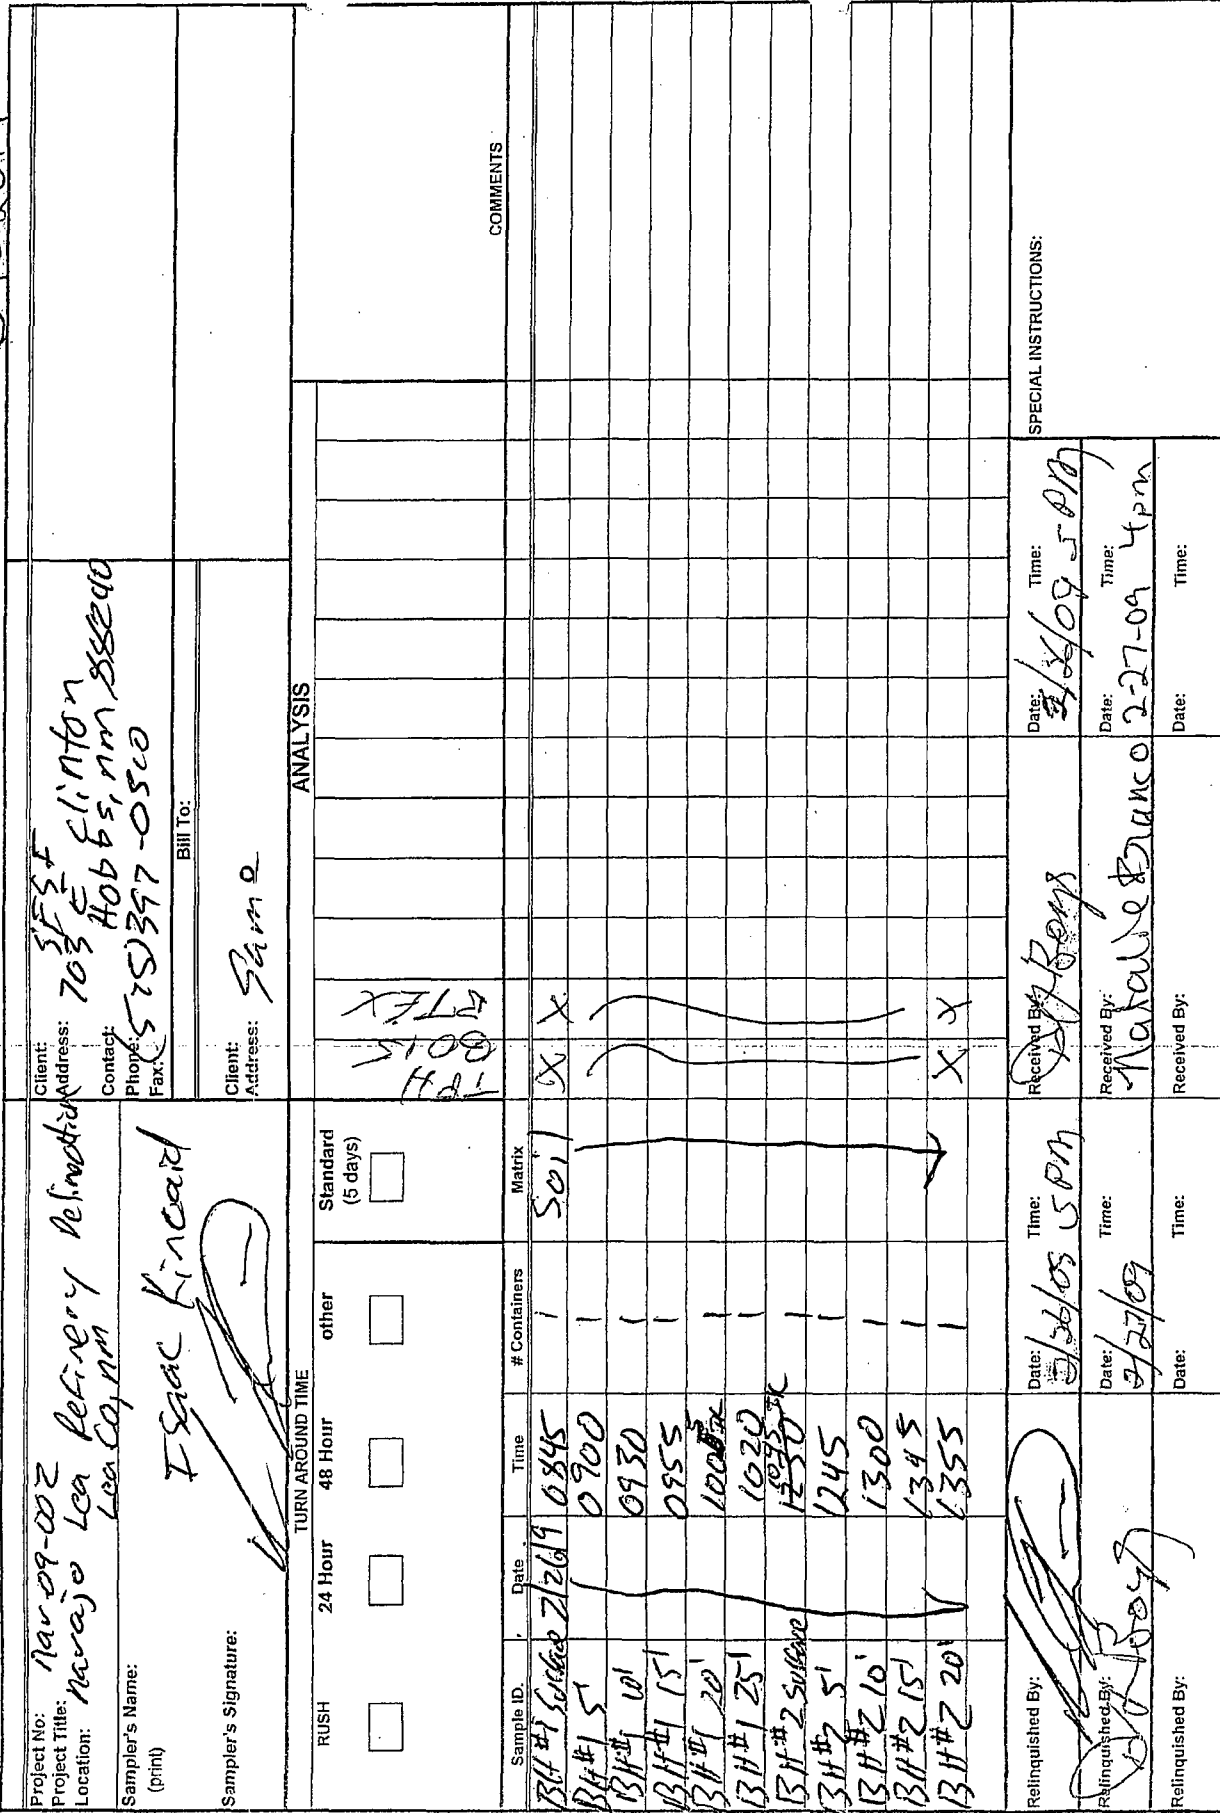 Project No: Nav-09-002
Project Title: Navajo Lea Refinery Delineation
Location: Lea Co, NM
Sampler's Name:
(print)
Isaac Kincaid
Sampler's Signature:
Client: SESI
Address: 703 E Clinton
Hobbs, nm 88240
Contact:
Phone: (575)397-0510
Fax:
Bill To:
Client: Same
Address:
TURN AROUND TIME
RUSH 24 Hour 48 Hour other Standard
(5 days)
ANALYSIS
TPH
8015
BTEX
COMMENTS
Sample ID. Date Time # Containers Matrix
BH #1 Surface 2/26/9 0845 1 Soil X X
BH #1 5' 0900 1
BH #1 10' 0930 1
BH #1 15' 0955 1
BH #1 20' 1
BH #1 25' 1020 1
BH #2 Surface 1
BH #2 5' 1245 1
BH #2 10' 1300 1
BH #2 15' 1345 1
BH #2 20' 1355 1 X X
Relinquished By: Date: Time: 5 PM Received By: Date: Time: 5 PM
Relinquished By: Date: 2/27/09 Time: Received By: Natalie Branco Date: 2-27-09 Time: 4pm
Relinquished By: Date: Time: Received By: Date: Time:
SPECIAL INSTRUCTIONS: